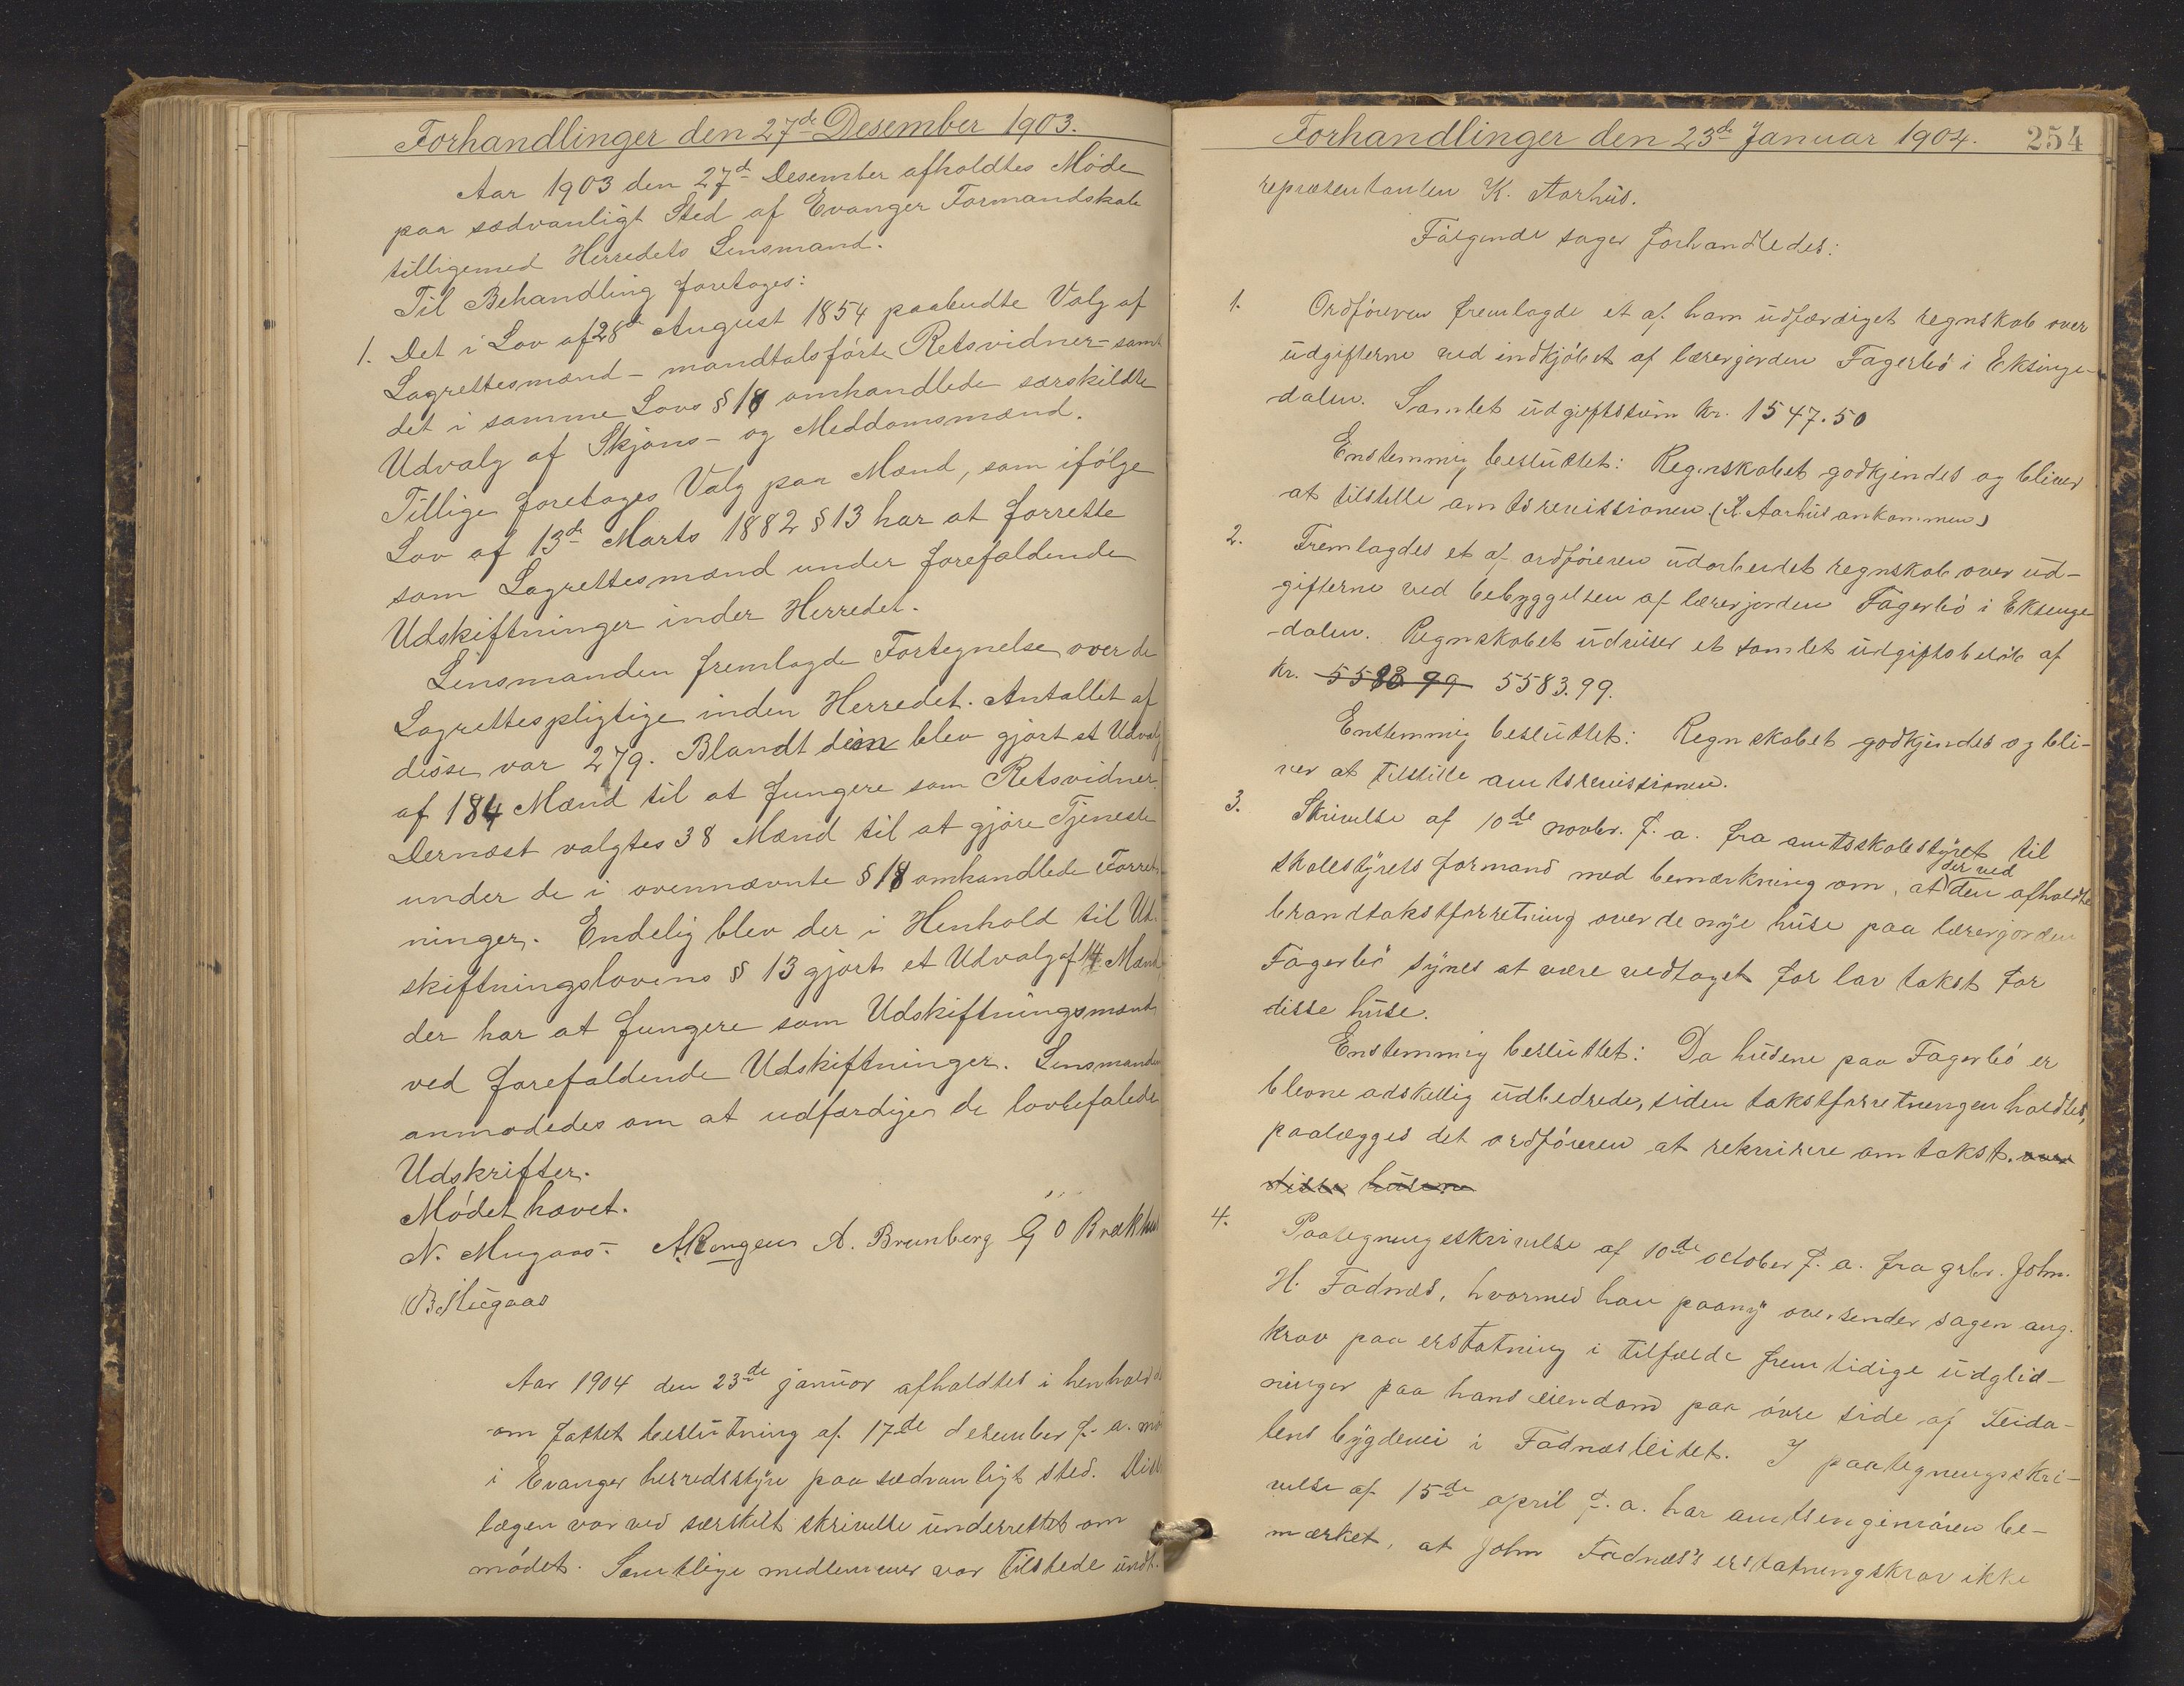 Forhandlinger den 27de Desember 1903.
Aar 1903 den 27d Desember afholdtes Møde
paa sædvanligt Sted af Evanger Formandskab
tilligemed Herredets Lensmand.
Til Behandling foretoges:
1. Det i Lov af 28d August 1854 paabudte Valg af
Lagrettesmænd - mandtalsførte Retsvidner - samt
det i samme Lovs § 18 omhandlede særskildte
Udvalg af Skjøns- og Meddomsmænd.
Tillige foretoges Valg paa Mænd, som ifølge
Lov af 13de Marts 1882 § 13 har at forrette
som Lagrettesmænd under forefaldende
Udskiftninger inden Herredet.
Lensmanden fremlagde Fortegnelse over de
Lagrettespligtige inden Herredet. Antallet af
disse var 279. Blandt dem blev gjort et Udvalg
af 184 Mænd til at fungere som Retsvidner.
Dernæst valgtes 38 Mænd til at gjøre Tjeneste
under de i ovennævnte § 18 omhandlede Forret-
ninger. Endelig blev der i Henhold til Ud-
skiftningslovens § 13 gjort et Udvalg af 14 Mænd
der har at fungere som Udskiftningsmænd
ved forefaldende Udskiftninger. Lensmanden
anmodedes om at udfærdige de lovbefalede
Udskrifter.
Mødet hævet.
N. Mugaas. A. Brunborg G O Brækhus
B Mugaas
Aar 1904 den 23de januar afholdtes i henhold
om fattet beslutning af 17de desember f. a.
i Evanger herredsstyre paa sædvanligt sted.
lægen var ved særskilt skrivelse underrettet om
mødet. Samtlige medlemmer var tilstede undt.
Forhandlinger den 23de Januar 1904. 254
repræsentanten K. Aarhus.
Følgende sager forhandledes:
1. Ordføreren fremlagde et af ham udfærdiget regnskab over
udgifterne ved indkjøbet af lærerjorden Fagerbø i Eksinge-
dalen. Samlet udgiftssum kr. 1547.50
Enstemmig besluttet: Regnskabet godkjendes og bliver
at tilstille amtsrevissionen. (K. Aarhus ankommen)
2. Fremlagdes et af ordføreren udarbeidet regnskab over ud-
gifterne ved bebyggelsen af lærerjorden Fagerbø i Eksinge
-dalen. Regnskabet udviser et samlet udgiftsbeløb af
kr. 5583.99 5583.99.
Enstemmig besluttet: Regnskabet godkjendes og bli-
ver at tilstille amtsrevissionen.
3. Skrivelse af 10de novbr. f. a. fra amtsskolestyret til
skolestyrets formand med bemærkning om, at der ved den afholdte
brandtakstforretning over de nye huse paa lærerjorden
Fagerbø synes at være vedtaget for lav takst for
disse huse.
Enstemmig besluttet: Da husene paa Fagerbø er
blevne adskillig udbedrede, siden takstforretningen holdtes,
paalægges det ordføreren at rekvirere om takst. over
disse husene
4. Paategningsskrivelse af 10de october f. a. fra grbr. John.
H. Fadnæs, hvormed han paany oversender sagen ang.
krav paa erstatning i tilfælde fremtidige udglid-
ninger paa hans eiendom paa øvre side af Teida-
lens bygdevei i Fadnæsleitet. I paategningsskri-
velse af 15de april f. a. har amtsingeniøren be-
mærket, at John Fadnæs's erstatningskrav ikke